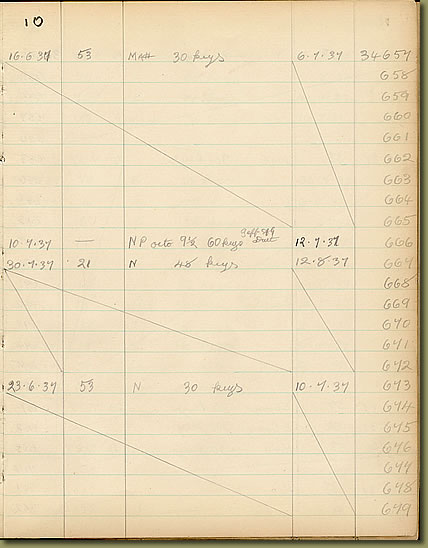 10
16.6.37 53 Mah 30 keys 6.7.37 34657
658
659
660
661
662
663
664
665
10.7.37 — NP octo 9½ 60 keys 12.7.37 666
30.7.37 21 N 48 keys 12.8.37 667
668
669
670
671
672
23.6.37 53 N 30 keys 10.7.37 673
674
675
676
677
678
679